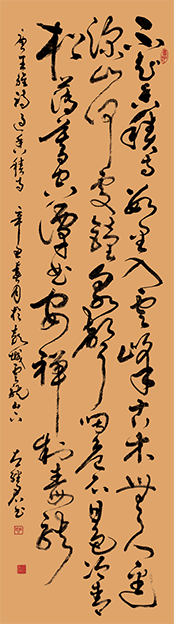 不知香積寺數里入雲峰古木無人逕
深山何處鐘泉聲咽危石日色冷青
松薄暮空潭曲安禪制毒龍
唐王維詩過香積寺 辛丑春月於
書